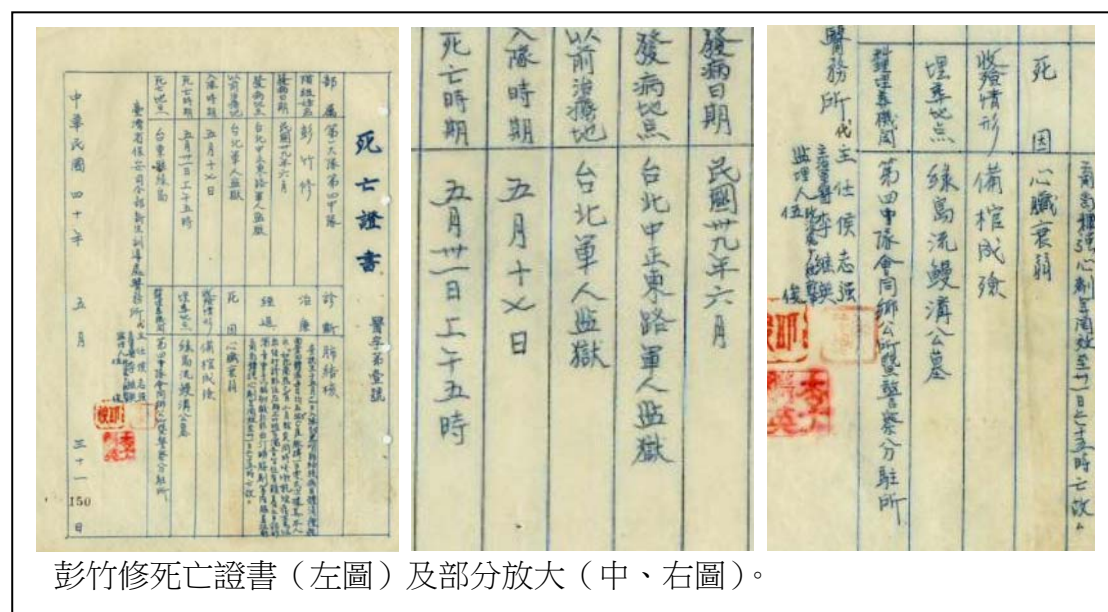 死亡證書
醫字第壹號
部屬 第一大隊第四中隊
階級姓名 彭竹修
發病日期 民國卅九年六月
發病地点 台北中正東路軍人監獄
以前治療地 台北軍人監獄
入隊時期 五月十七日
死亡時期 五月卅一日上午五時
死亡地点 台東縣綠島
診斷 肺結核
治療經過
死因 心臟衰弱
收殮情形 備棺成殮
埋葬地点 綠島流鰻溝公墓
第四中隊會同鄉公所暨警察分駐所
臺灣省保安司令部新生訓導處醫務所 代主任侯志强
中華民國四十年五月三十一日
150
發病日期 民國卅九年六月
發病地点 台北中正東路軍人監獄
以前治療地 台北軍人監獄
入隊時期 五月十七日
死亡時期 五月卅一日上午五時
至卅一日上午五時亡故。
死因 心臟衰弱
收殮情形 備棺成殮
埋葬地点 綠島流鰻溝公墓
第四中隊會同鄉公所暨警察分駐所
醫務所 代主任侯志强
李继兴
監理人伍俊
彭竹修死亡證書（左圖）及部分放大（中、右圖）。